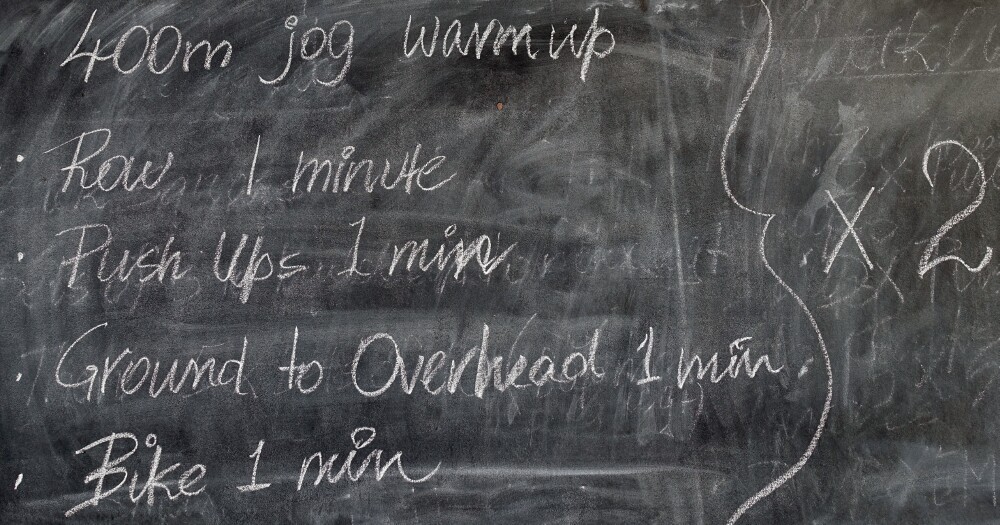 400m jog warm up
· Row 1 minute
· Push Ups 1 min
· Ground to Overhead 1 min
· Bike 1 min
X 2